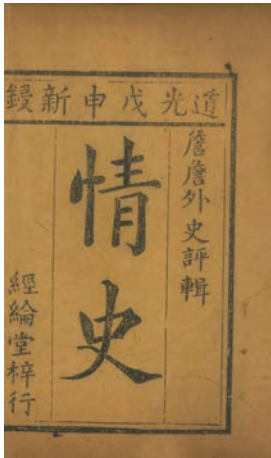 道光戊申新鐫
詹詹外史評輯
情史
經綸堂梓行